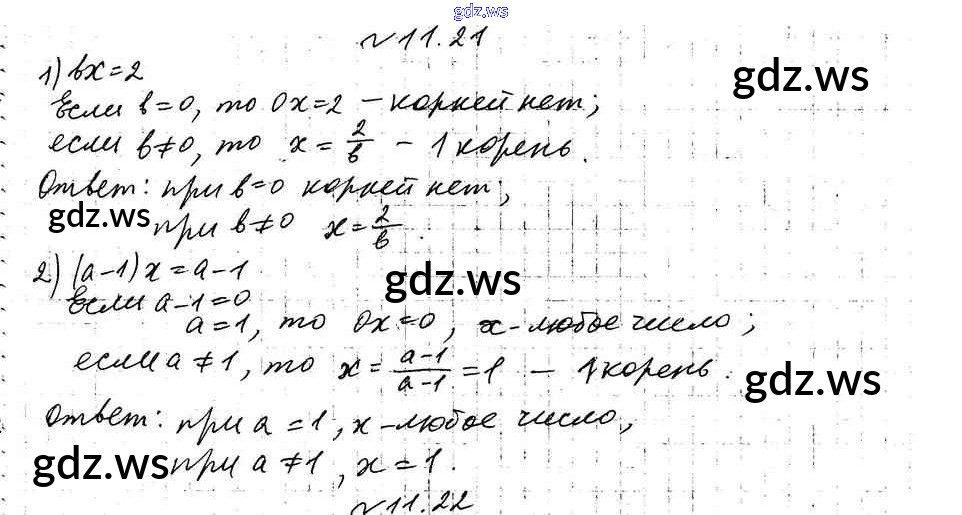 gdz.ws
№ 11.21
1) bx=2
gdz.ws
Если b=0, то 0x=2 – корней нет;
если b≠0, то x = 2/b – 1 корень.
Ответ: при b=0 корней нет;
gdz.ws
при b≠0 x = 2/b.
2) (a-1)x = a-1
gdz.ws
Если a-1=0
a=1, то 0x=0, x-любое число;
если a≠1, то x = a-1/a-1 = 1 – 1 корень.
gdz.ws
Ответ: при a=1, x-любое число,
gdz.ws
при a≠1, x=1.
gdz.ws
№ 11.22